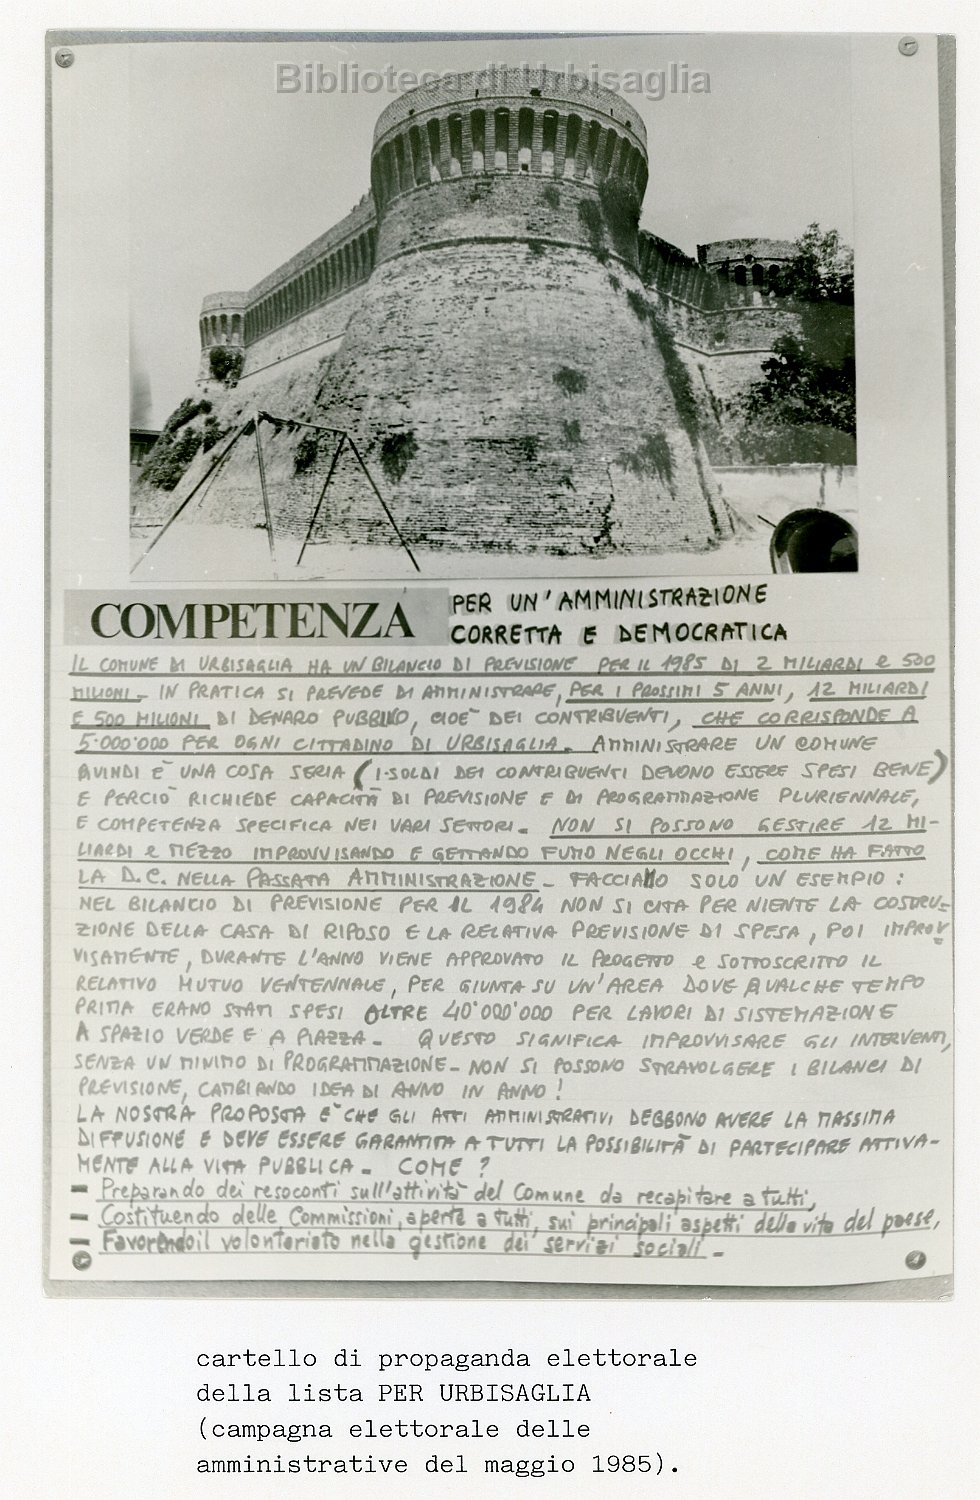 Biblioteca di Urbisaglia
COMPETENZA PER UN'AMMINISTRAZIONE
CORRETTA E DEMOCRATICA
IL COMUNE DI URBISAGLIA HA UN BILANCIO DI PREVISIONE PER IL 1985 DI 2 MILIARDI e 500
MILIONI - IN PRATICA SI PREVEDE DI AMMINISTRARE, PER I PROSSIMI 5 ANNI, 12 MILIARDI
E 500 MILIONI DI DENARO PUBBLICO, CIOE' DEI CONTRIBUENTI, CHE CORRISPONDE A
5.000'000 PER OGNI CITTADINO DI URBISAGLIA. AMMINISTRARE UN COMUNE
QUINDI E' UNA COSA SERIA (I SOLDI DEI CONTRIBUENTI DEVONO ESSERE SPESI BENE)
E PERCIO' RICHIEDE CAPACITÀ DI PREVISIONE E DI PROGRAMMAZIONE PLURIENNALE,
E COMPETENZA SPECIFICA NEI VARI SETTORI. NON SI POSSONO GESTIRE 12 MI-
LIARDI e MEZZO IMPROVVISANDO E GETTANDO FUMO NEGLI OCCHI, COME HA FATTO
LA D.C. NELLA PASSATA AMMINISTRAZIONE - FACCIAMO SOLO UN ESEMPIO:
NEL BILANCIO DI PREVISIONE PER IL 1984 NON SI CITA PER NIENTE LA COSTRU-
ZIONE DELLA CASA DI RIPOSO E LA RELATIVA PREVISIONE DI SPESA, POI IMPROV
VISAMENTE, DURANTE L'ANNO VIENE APPROVATO IL PROGETTO e SOTTOSCRITTO IL
RELATIVO MUTUO VENTENNALE, PER GIUNTA SU UN'AREA DOVE QUALCHE TEMPO
PRIMA ERANO STATI SPESI OLTRE 40'000'000 PER LAVORI DI SISTEMAZIONE
A SPAZIO VERDE E A PIAZZA - QUESTO SIGNIFICA IMPROVVISARE GLI INTERVENTI,
SENZA UN MINIMO DI PROGRAMMAZIONE - NON SI POSSONO STRAVOLGERE I BILANCI DI
PREVISIONE, CAMBIANDO IDEA DI ANNO IN ANNO!
LA NOSTRA PROPOSTA E' CHE GLI ATTI AMMINISTRATIVI DEBBONO AVERE LA MASSIMA
DIFFUSIONE E DEVE ESSERE GARANTITA A TUTTI LA POSSIBILITÀ DI PARTECIPARE ATTIVA-
MENTE ALLA VITA PUBBLICA - COME?
- Preparando dei resoconti sull'attività del Comune da recapitare a tutti,
- Costituendo delle Commissioni, aperte a tutti, sui principali aspetti della vita del paese,
- Favorendo il volontariato nella gestione dei servizi sociali -
cartello di propaganda elettorale
della lista PER URBISAGLIA
(campagna elettorale delle
amministrative del maggio 1985).